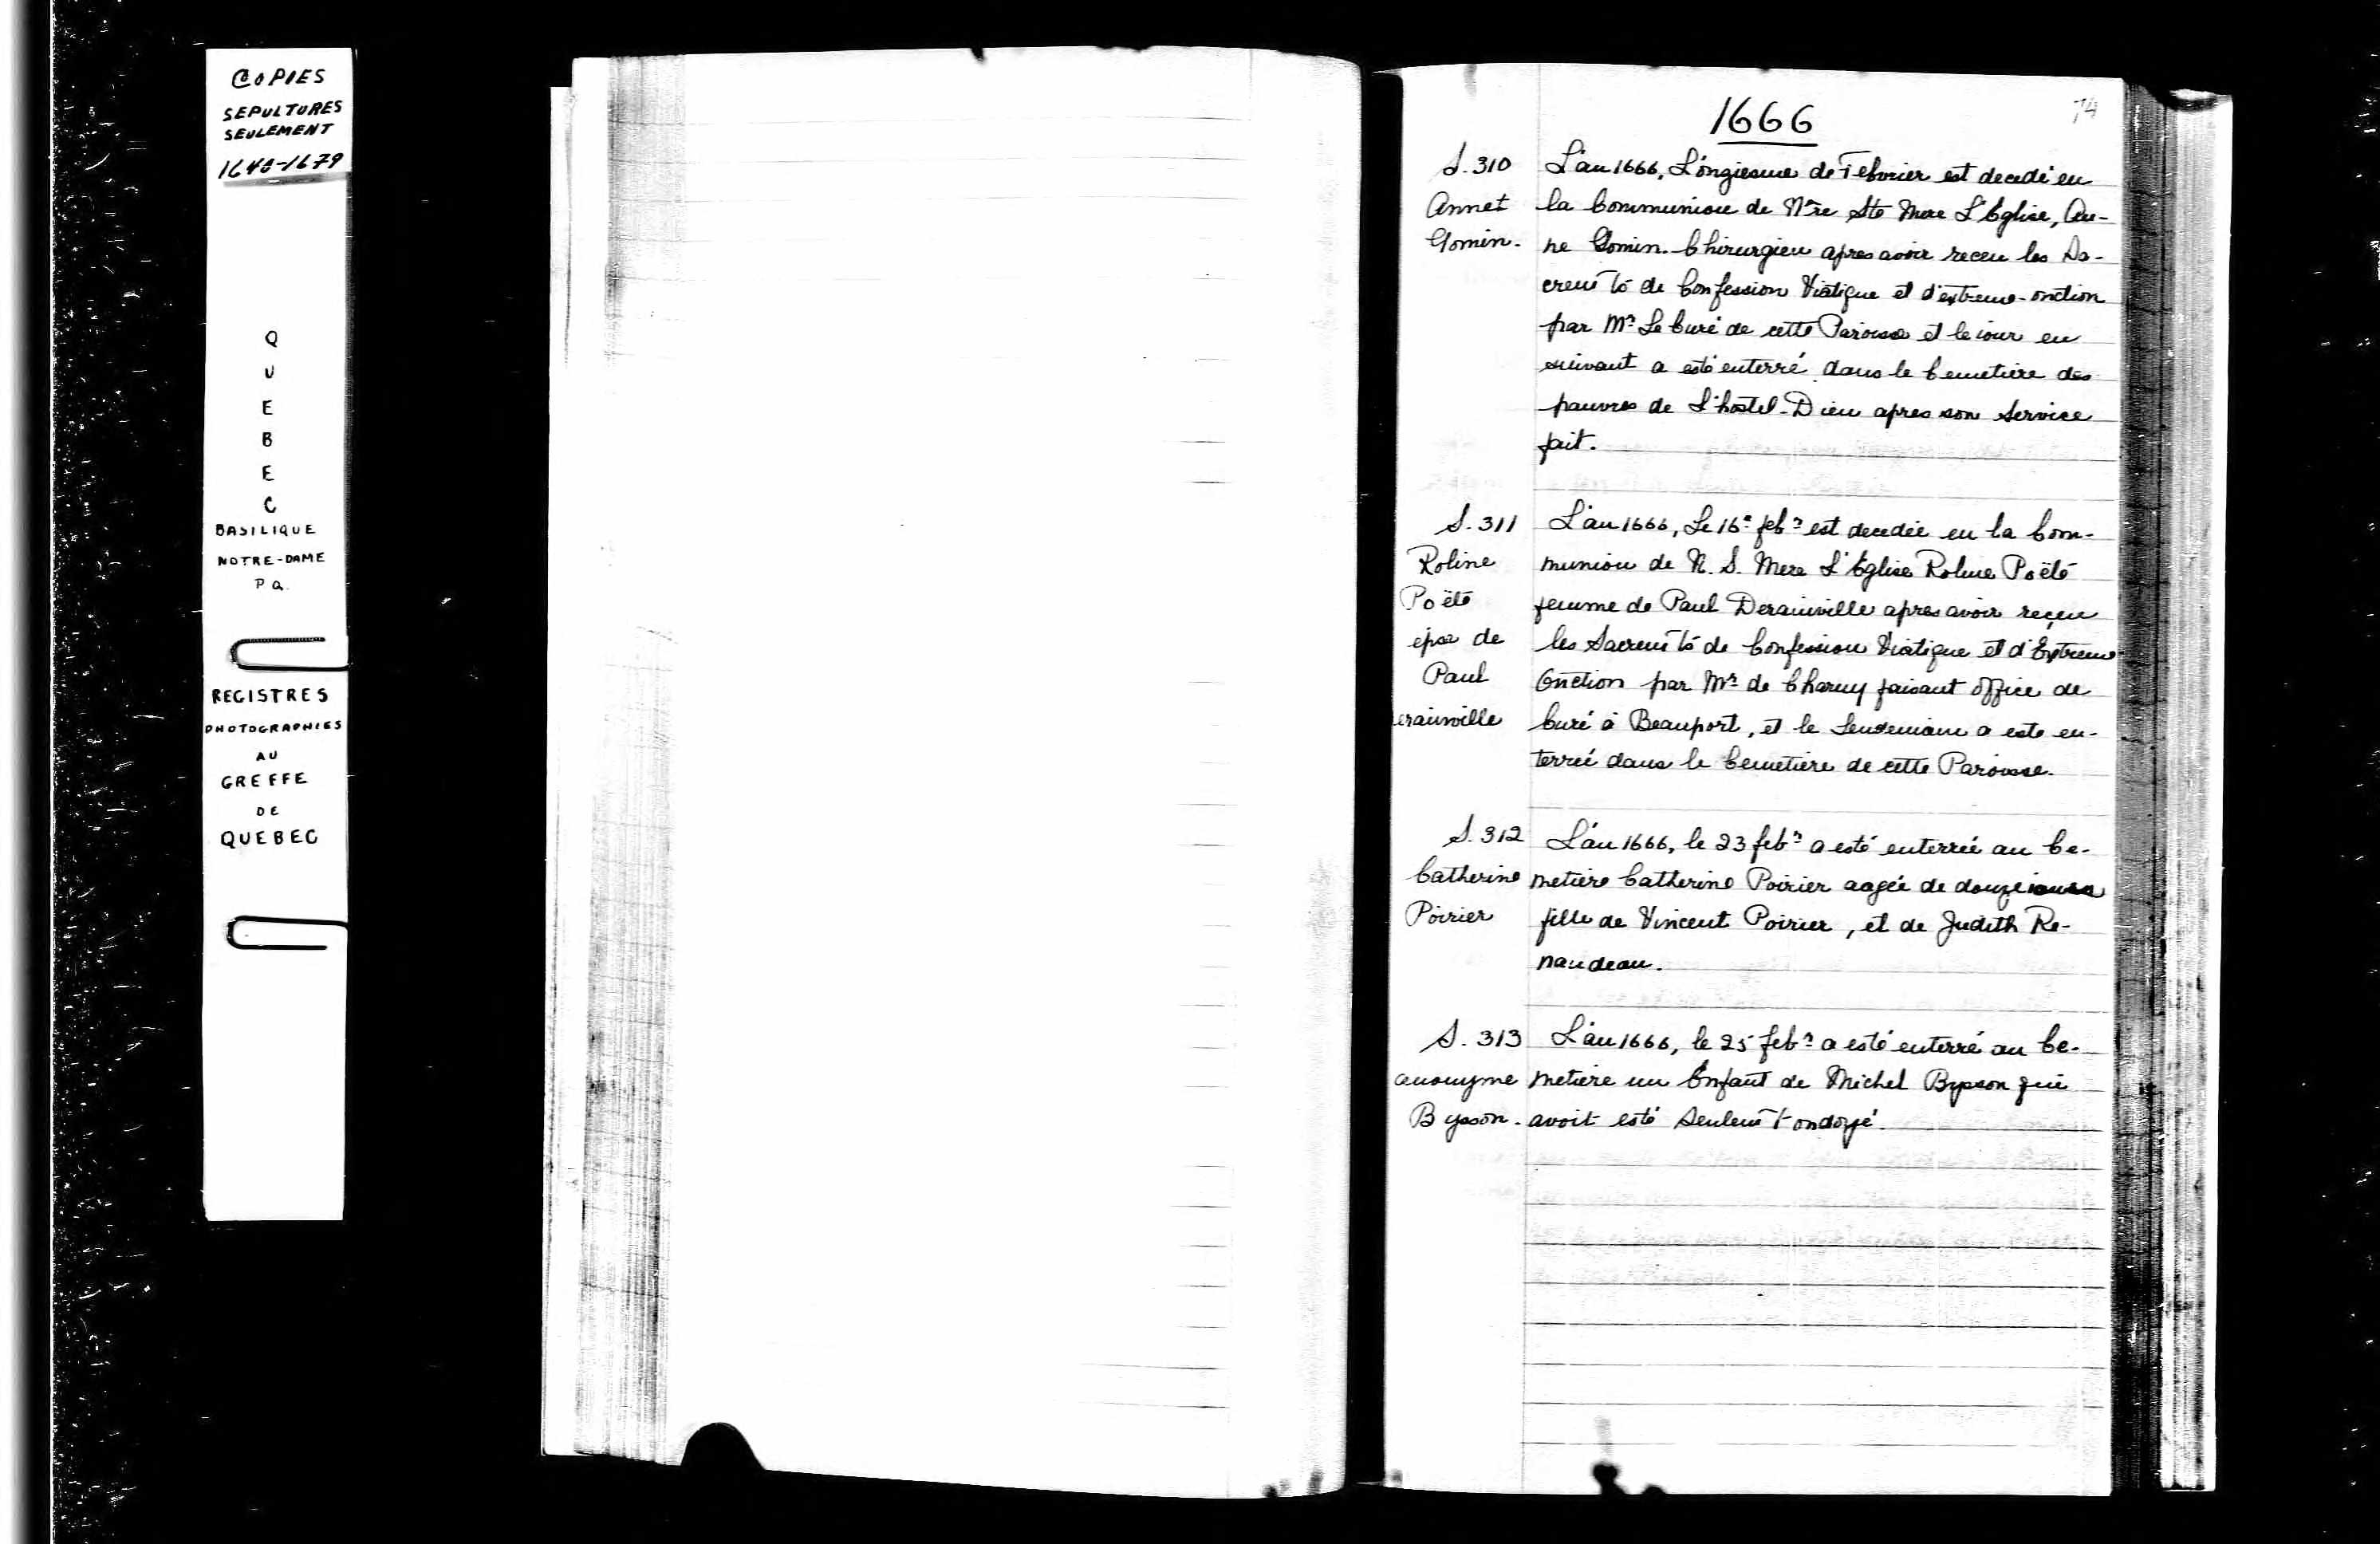 COPIES
SEPULTURES
SEULEMENT
1640-1679
Q
U
E
B
E
C
BASILIQUE
NOTRE-DAME
P Q.
REGISTRES
PHOTOGRAPHIES
AU
GREFFE
DE
QUEBEC
74
1666
S. 310
Annet
Gomin.
L'an 1666, L'ongiesme de Febvrier est decedé en
la Communion de Nre Ste Mere L'Eglise, An-
ne Gomin. Chirurgien apres avoir receu les Sa-
cremts de Confession Viatique et d'extreme-onction
par Mr Le Curé de cette Paroisse et le iour en
suivant a esté enterré dans le Cemetiere des
pauvres de L'hostel-Dieu apres son Service
fait.
S. 311
Roline
Poëté
épse de
Paul
erainville
L'an 1666, Le 16e febr est decedée en la Com-
munion de N. S. Mere L'Eglise Roline Poëté
femme de Paul Derainville apres avoir reçeu
les Sacremts de Confession Viatique et d'Extreme
Onction par Mr de Charny faisant office de
Curé à Beauport, et le Lendemain a esté en-
terrée dans le Cemetiere de cette Paroisse.
S. 312
Catherine
Poirier
L'an 1666, le 23 febr a esté enterrée au Ce-
metiere Catherine Poirier aagée de douze iours
fille de Vincent Poirier, et de Judith Re-
naudeau.
S. 313
anonyme
Bysson.
L'an 1666, le 25 febr a esté enterré au Ce-
metiere un Enfant de Michel Bysson qui
avoit esté Seulemt ondoyé.